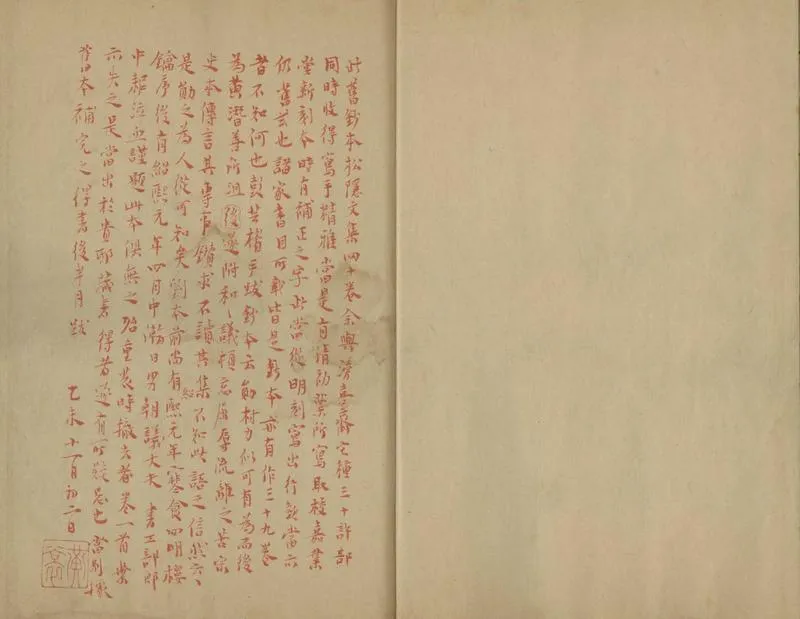 此舊鈔本松隱文集四十卷余與滂喜齋它種三十許部
同時收得寫手精雅當是有清初葉所寫取校嘉業
堂新刻本時有補正之字此當從明刻寫出行款當亦
仍舊式也諸家書目所載皆是鈔本亦有作三十九卷
者不知何也彭芸楣手跋鈔本云勛材力似可有為而後
為黃潛善所沮後遂附和和議頓忘屈辱流離之苦宋
史本傳言其專事鑽求不讀其集不知此語之信然云云
是勛之為人從可知矣劉本前尚有紹熙元年寒食四明樓
鑰序後有紹熙元年四月中澣日男朝議大夫 書工部郎
中耜泣血謹題此本俱無之殆重裝時撤去者卷一首葉
亦失之是當出於貴邸藏者得者遂有所疑忌也當別檢
舊本補完之得書後半月跋
乙未十一月初二日